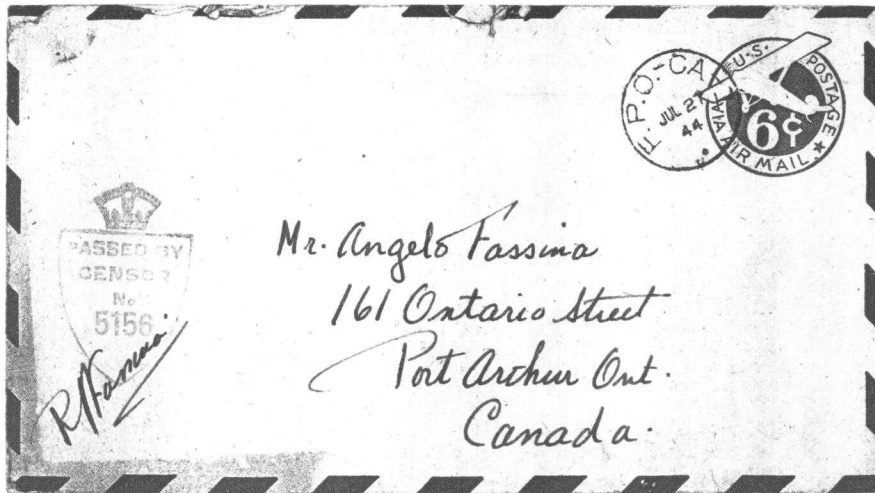 F.P.O.-CA
JUL 27
44
U.S. POSTAGE
VIA AIR MAIL
6¢
PASSED BY
CENSOR
No.
5156
Mr. Angelo Fassina
161 Ontario Street
Port Arthur Ont.
Canada.